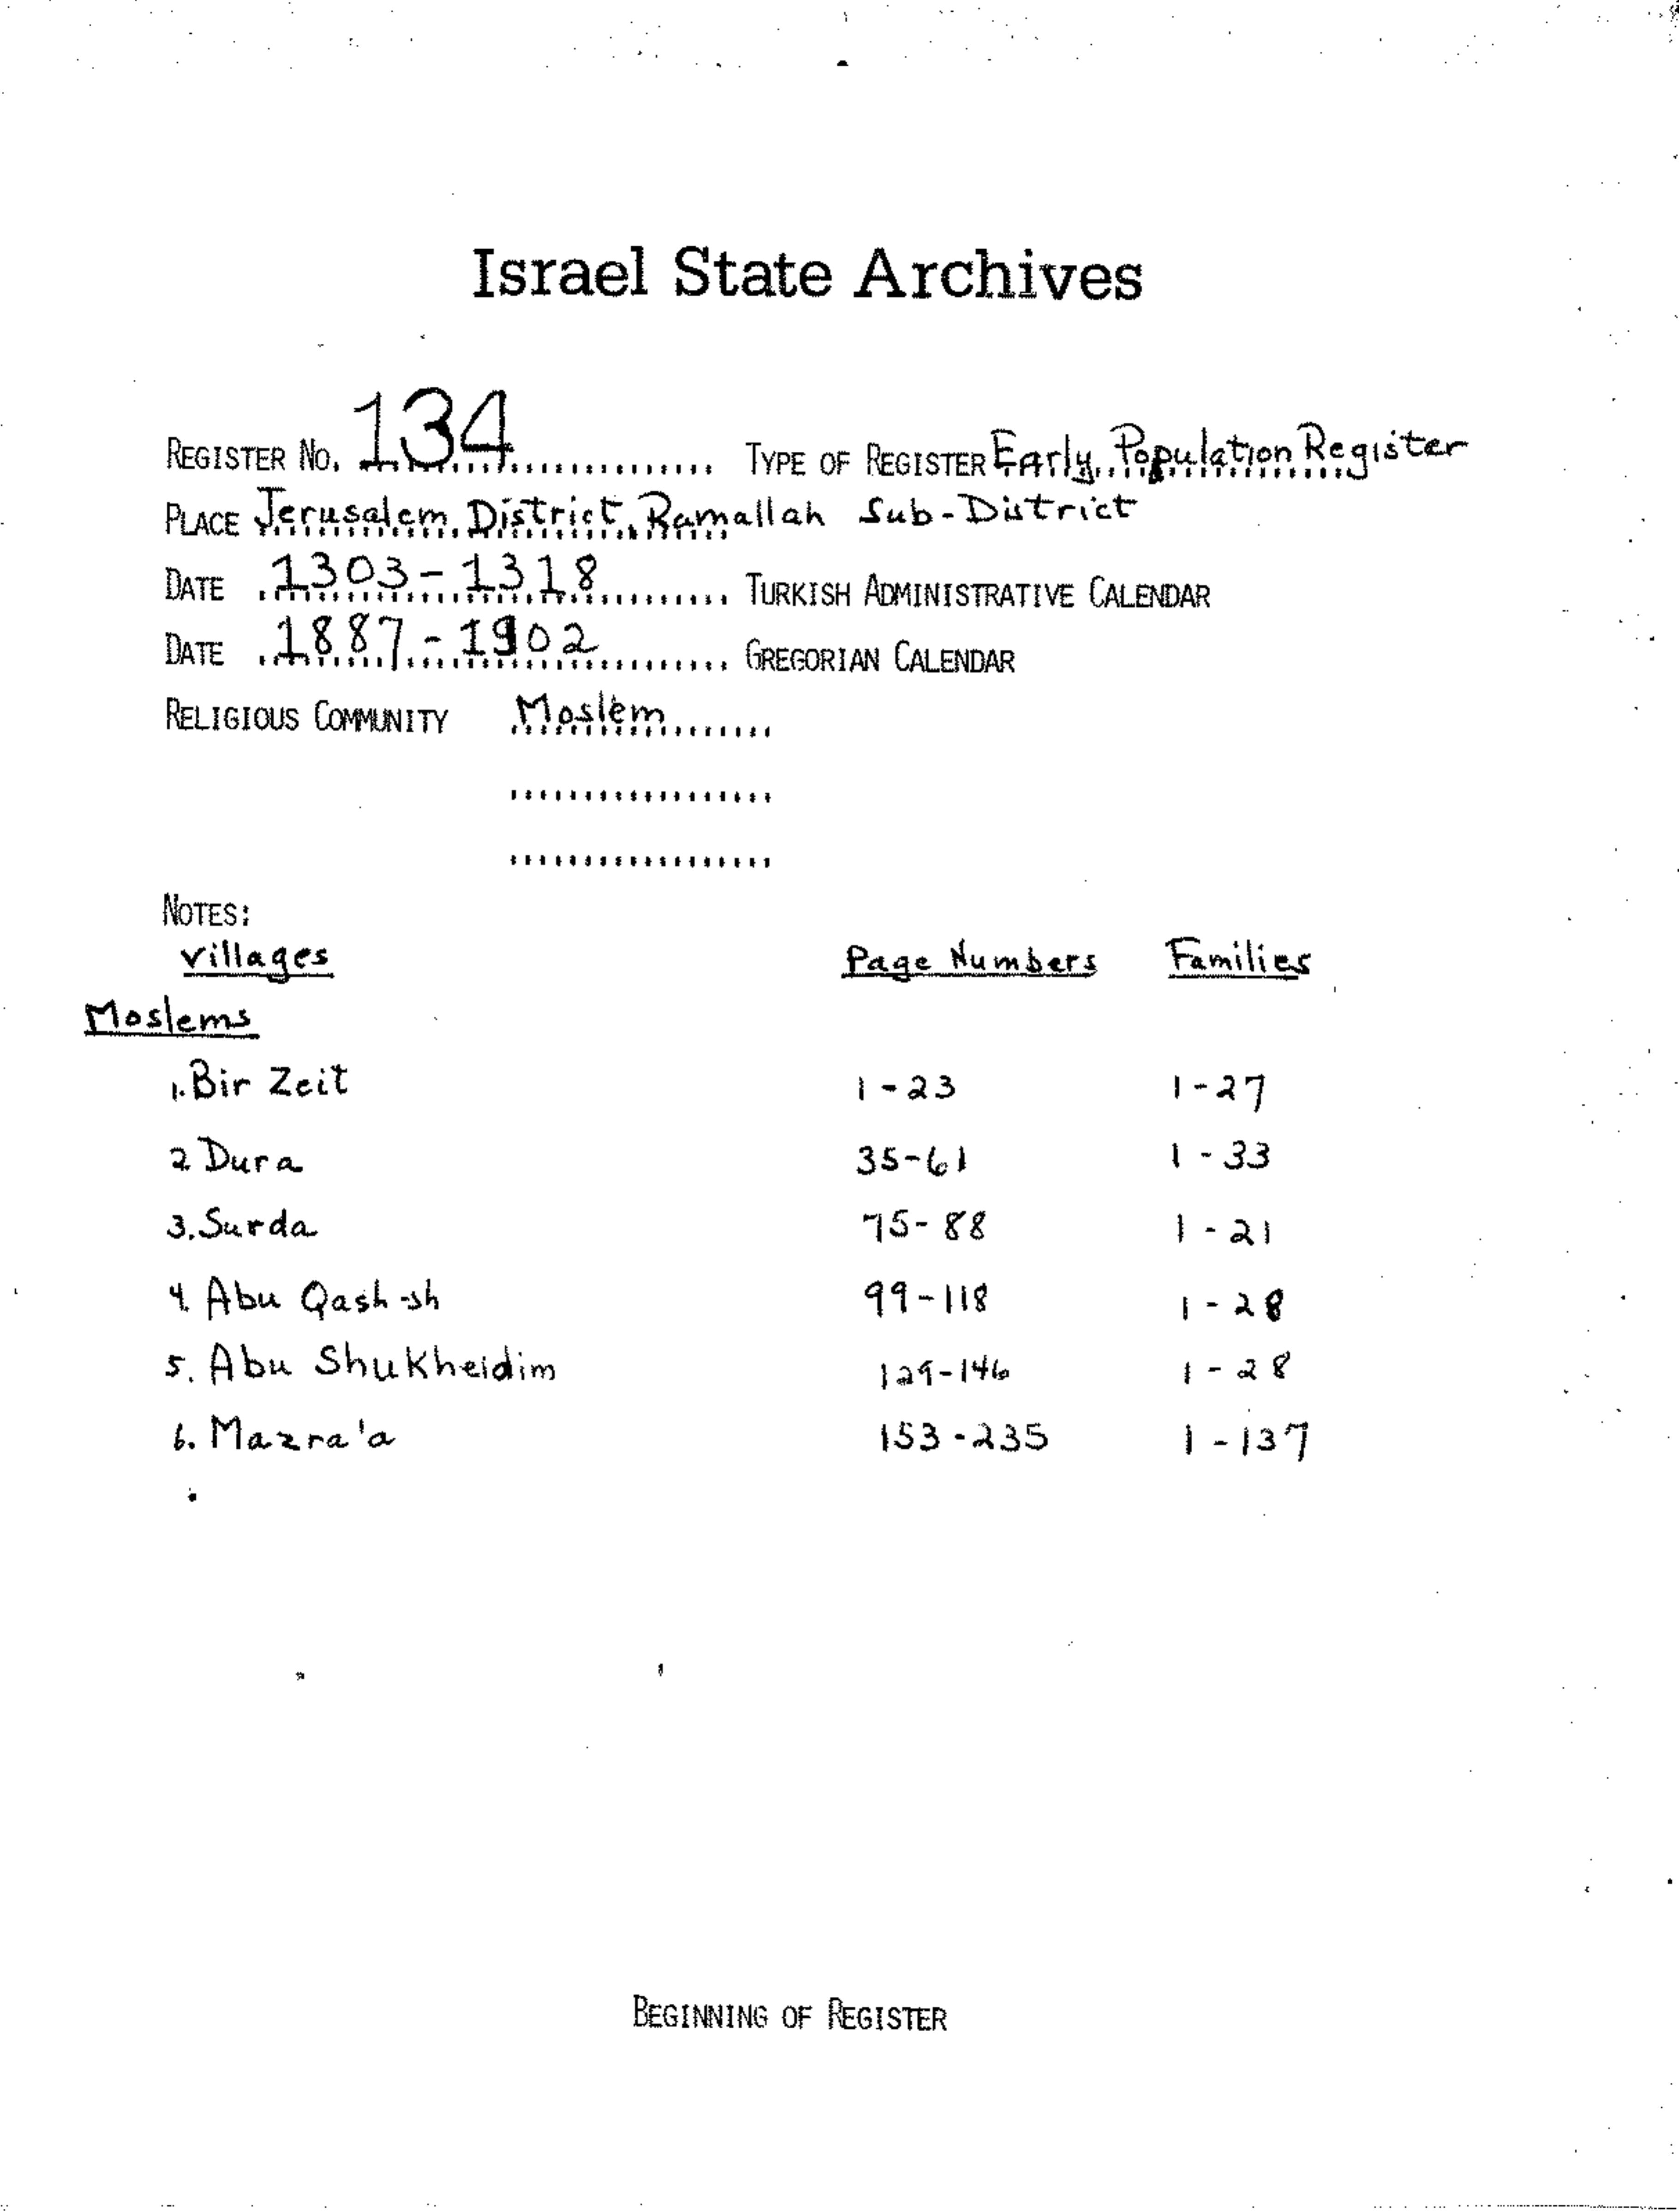 Israel State Archives
REGISTER NO. 134 TYPE OF REGISTER Early Population Register
PLACE Jerusalem District, Ramallah Sub-District
DATE 1303-1318 TURKISH ADMINISTRATIVE CALENDAR
DATE 1887-1902 GREGORIAN CALENDAR
RELIGIOUS COMMUNITY Moslem
NOTES:
Villages Page Numbers Families
Moslems
1. Bir Zeit 1-23 1-27
2 Dura 35-61 1-33
3. Surda 75-88 1-21
4. Abu Qash-sh 99-118 1-28
5. Abu Shukheidim 129-146 1-28
6. Mazra'a 153-235 1-137
BEGINNING OF REGISTER